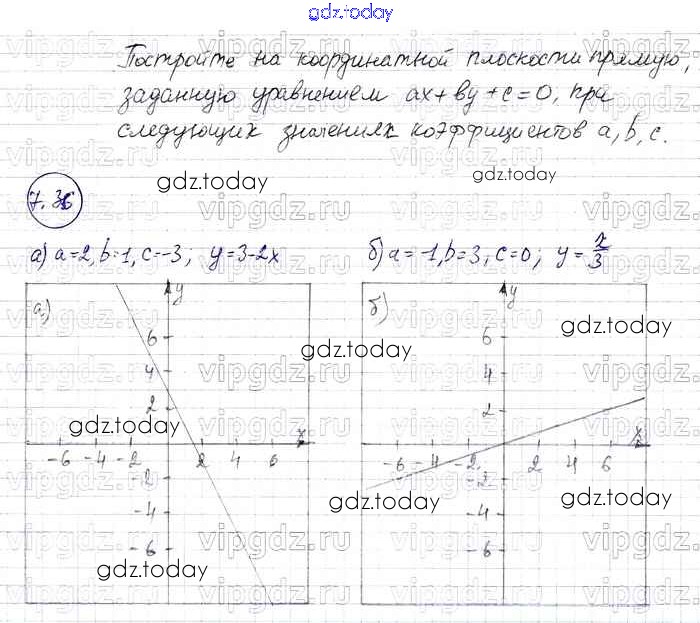 gdz.today
Постройте на координатной плоскости прямую,
заданную уравнением ax+by+c=0, при
следующих значениях коэффициентов a, b, c.
gdz.today gdz.today
7.36
а) a=2, b=1, c=-3; y=3-2x б) a=-1, b=3, c=0; y=x/3
а) y б) y
gdz.today
6 6
gdz.today
4 4
2 2
gdz.today
x x
-6 -4 -2 2 4 6 -6 -4 -2 2 4 6
-2 -2
gdz.today gdz.today
-4 -4
-6 -6
gdz.today